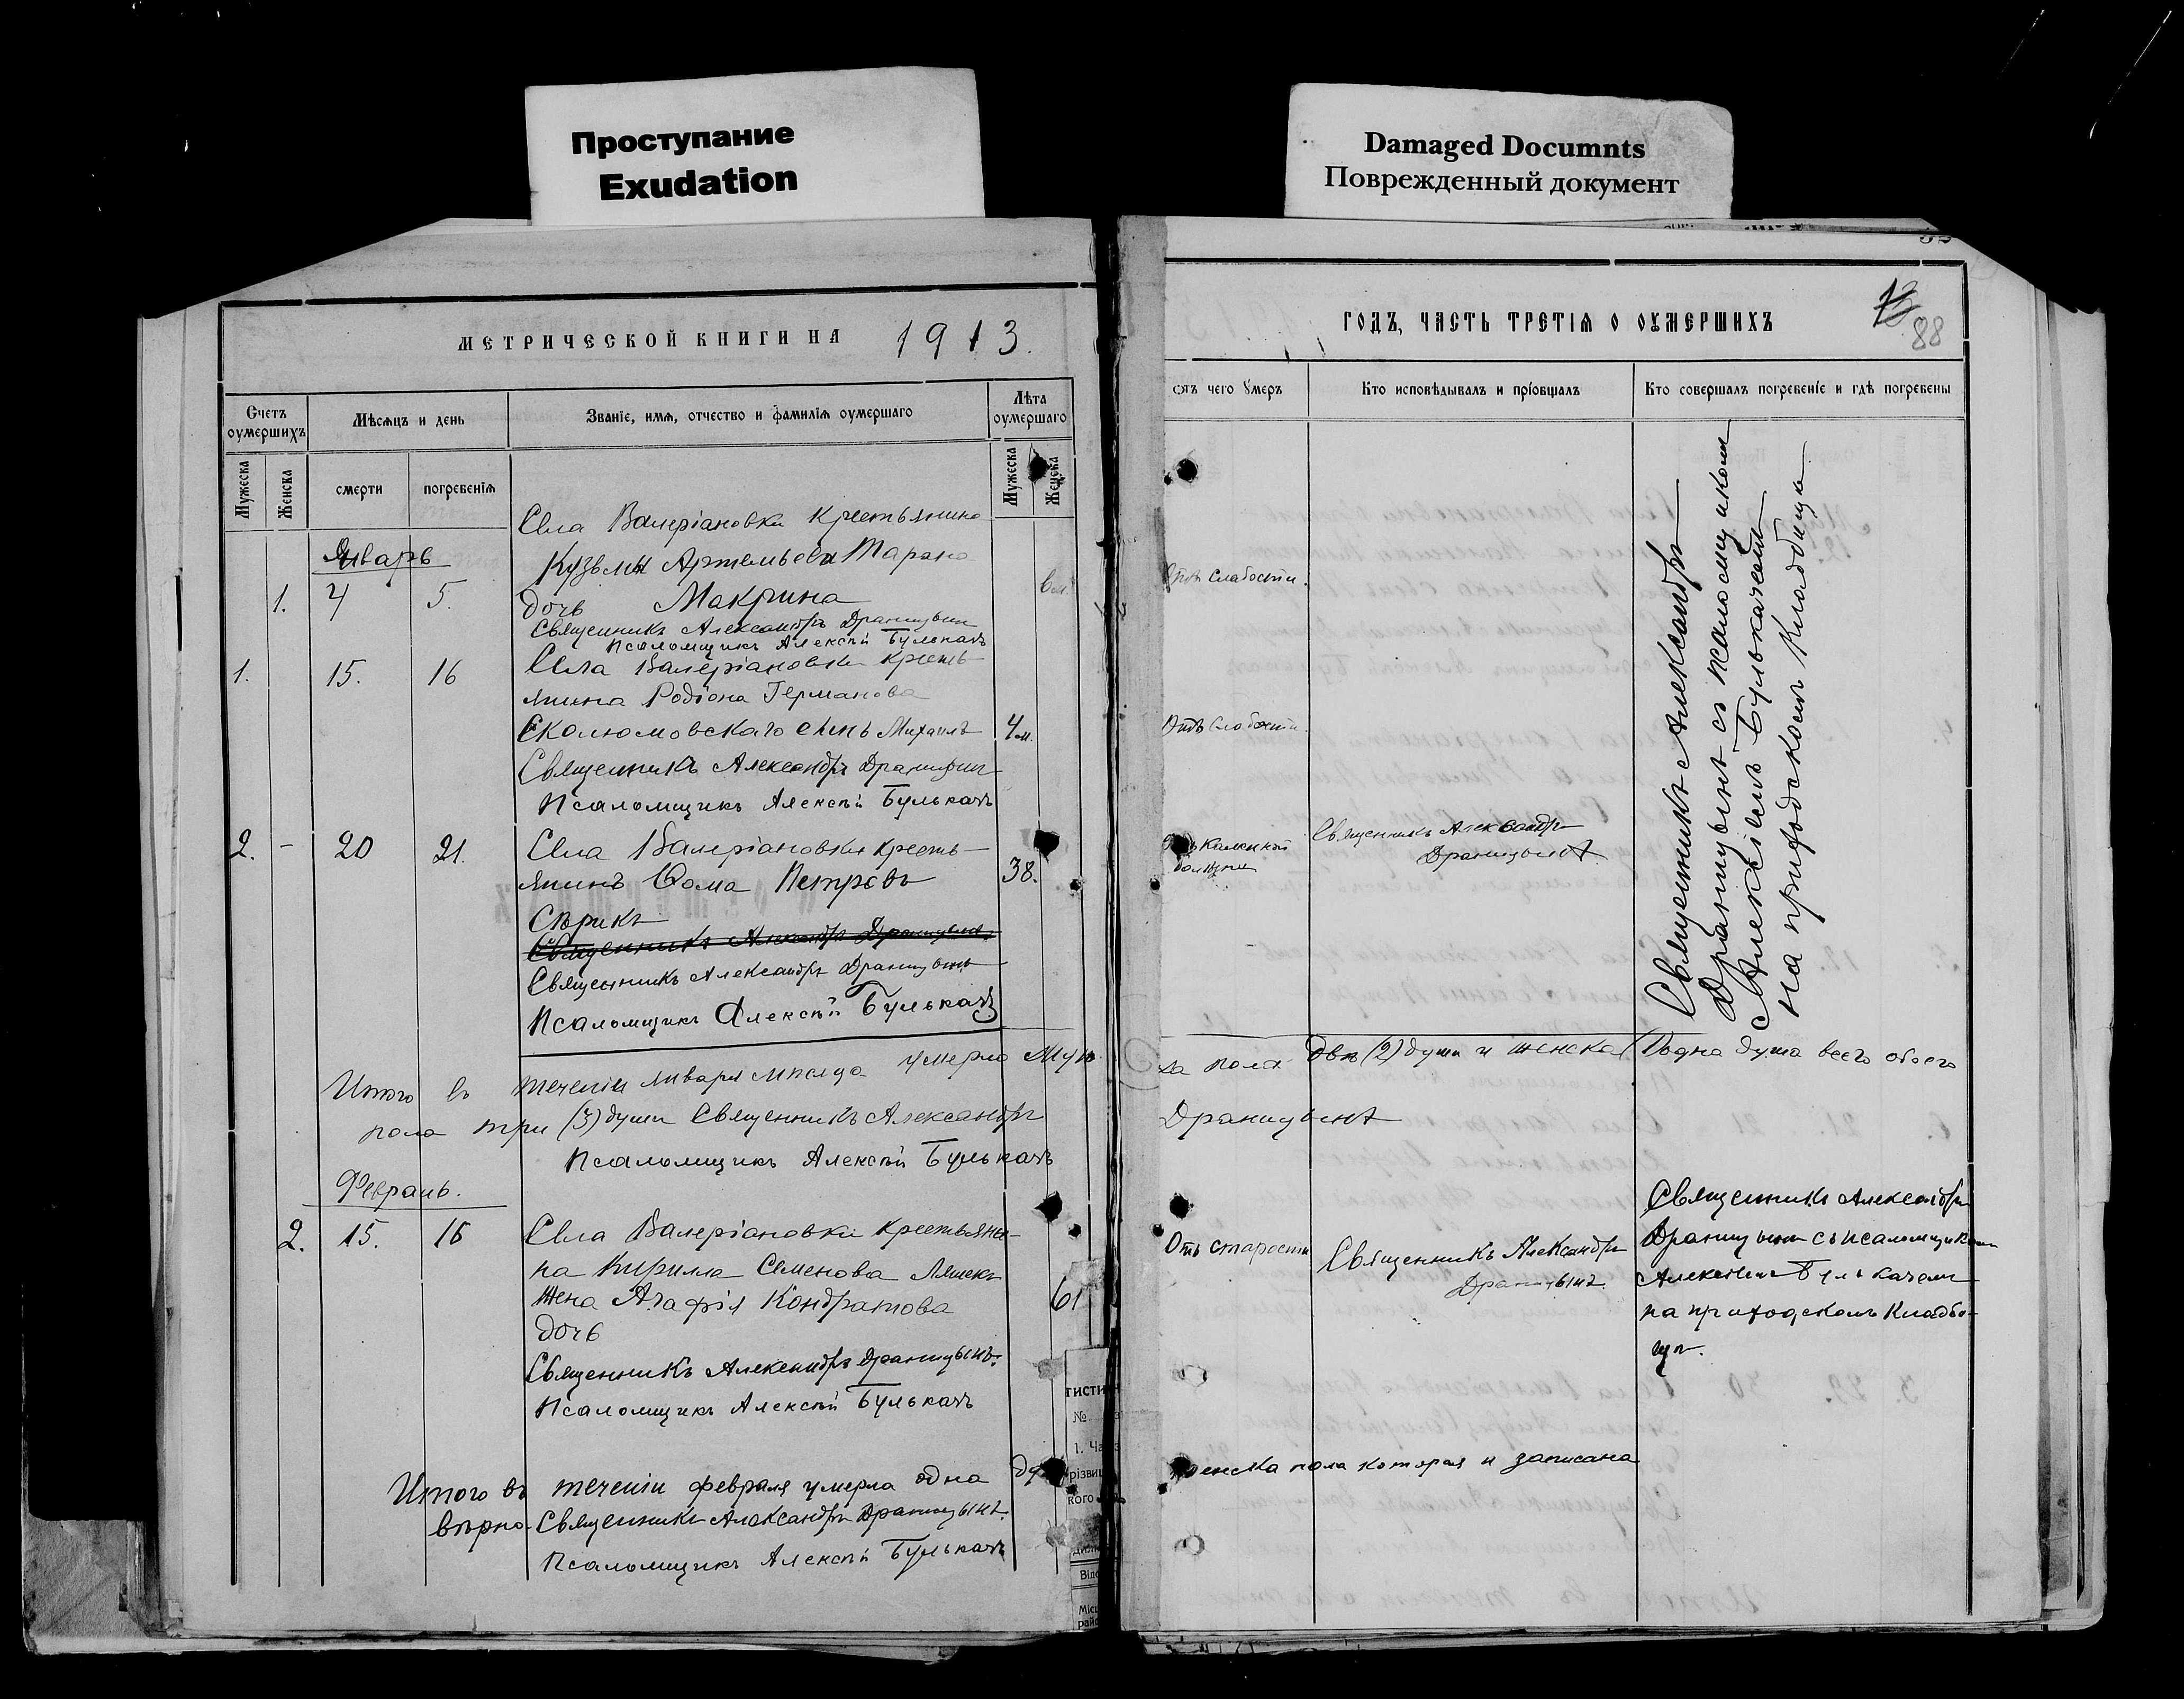 Проступание
Exudation
Damaged Documnts
Поврежденный документ
МЕТРИЧЕСКОЙ КНИГИ НА 1913.
Счетъ оумершихъ
Мѣсяцъ и день
Званіе, имя, отчество и фамилія оумершаго
Лѣта оумершаго
Мужеска
Женска
смерти
погребенія
Мужеска
Женска
Села Валеріановки крестьянина
Январь
Кузьмы Артемьева Тарана
1. 4 5. дочь Макрина
Священникъ Александръ Драницынъ
Псаломщикъ Алексѣй Булькачъ
1. 15. 16 Села Валеріановки кресть-
янина Родіона Германова
Сколюмовскаго сынъ Михаилъ 4 м.
Священникъ Александръ Драницынъ
Псаломщикъ Алексѣй Булькачъ
2. - 20 21. Села Валеріановки кресть-
янинъ Ѳома Петровъ 38.
Сѣрикъ
Священникъ Александръ Драницынъ
Священникъ Александръ Драницынъ
Псаломщикъ Алексѣй Булькачъ
Итого въ теченіи января мѣсяца умерло Муж
пола три (3) души Священникъ Александръ
Псаломщикъ Алексѣй Булькачъ
Февраль.
2. 15. 16 Села Валеріановки крестьяни-
на Кирилла Семенова Ляшекъ
жена Агафія Кондратова 61
дочь
Священникъ Александръ Драницынъ.
Псаломщикъ Алексѣй Булькачъ
Итого въ теченіи февраля умерла одна
вѣрно. Священникъ Александръ Драницынъ.
Псаломщикъ Алексѣй Булькачъ
№
ГОДЪ, ЧАСТЬ ТРЕТІЯ О ОУМЕРШИХЪ
88
отъ чего умеръ
Кто исповѣдывалъ и пріобщалъ
Кто совершалъ погребеніе и гдѣ погребены
Отъ слабости.
Отъ слабости.
Священникъ Александръ
Драницынъ
Священникъ Александръ
Драницынъ съ псаломщикомъ
Алексіемъ Булькачемъ
на приходскомъ кладбищѣ
ка пола двѣ (2) души и женска (1) одна душа всего обоего
Драницынъ
Отъ старости
Священникъ Александръ
Драницынъ.
Священникъ Александръ
Драницынъ съ псаломщикомъ
Алексѣемъ Булькачемъ
на приходскомъ кладби-
щѣ.
женска пола которая и записана